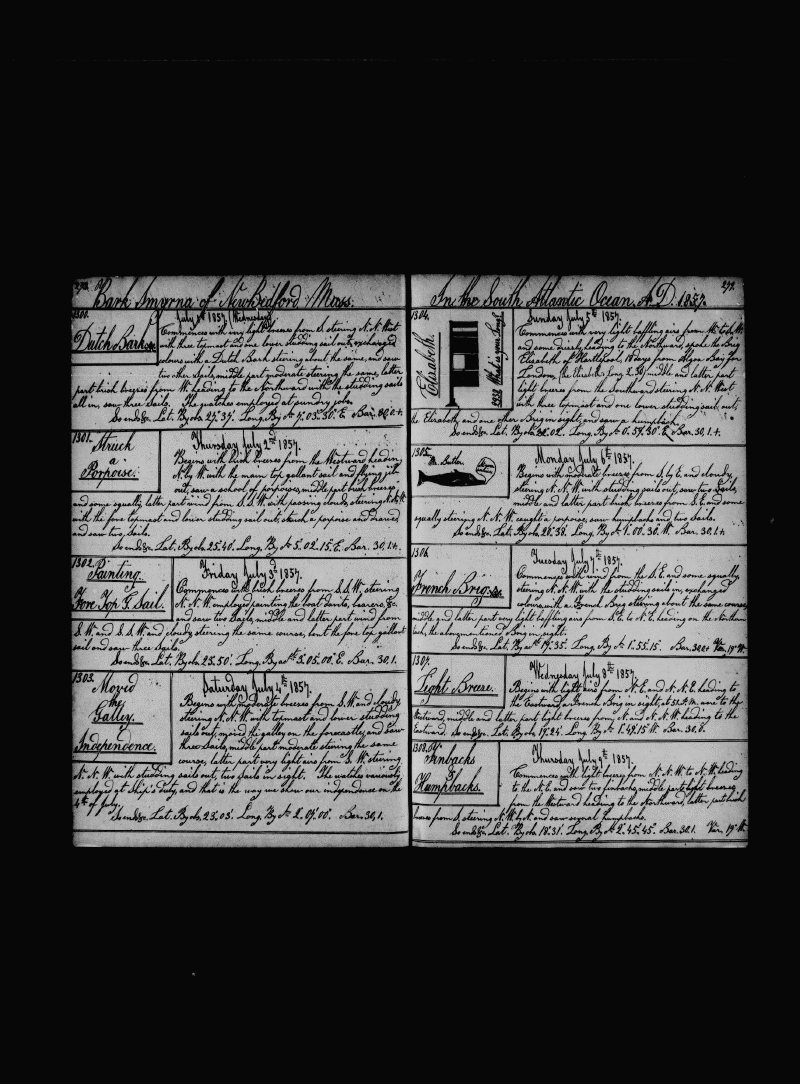 Bark Smyrna of New Bedford Mass.
1300.
Dutch Bark
July 1st 1857. Wednesday
Commences with very light breezes from S. steering N.N. West
with three topmast and one lower studding sail out, exchanged
colours with a Dutch Bark steering about the same, and saw
two other Sails, middle part moderate steering the same, latter
part brisk breezes from W. heading to the Northward with the studding sails
all in, saw three Sails. The watches employed at sundry jobs.
So ends &c. Lat. By ob. 27°37'. Long. By Ar 7.03.30". E. Bar. 30,0+
1301.
Struck
a
Porpoise.
Thursday July 2nd 1857.
Begins with brisk breezes from the Westward heading
N. by W. with the main top gallant sail and flying jib
out, saw a school of porpoises, middle part brisk breezes
and some squally, latter part wind from S.S.W. with passing clouds, steering N.N.W.
with the fore topmast and lower studding sail out, struck a porpoise and
and saw two, Sails.
So ends &c. Lat. By ob. 25.40. Long. By Ar 5.02.15". E. Bar. 30,1+.
1302.
Painting.
Fore Top G. Sail.
Friday July 3d 1857.
Commences with brisk breezes from S.S.W. steering
N.N.W. employed painting the boat davits, bearers, &c.
and saw two Sails, middle and latter part wind from
S.W. and S.S.W. and cloudy steering the same course, bent the fore top gallant
sail and saw three Sails.
So ends &c. Lat. By ob. 23.50'. Long. By Ar 3.05.00". E. Bar. 30,1.
1303.
Moved
the
Galley.
&
Independence.
Saturday July 4th 1857.
Begins with moderate breezes from S.W. and cloudy
steering N.N.W. with topmast and lower studding
sails out, moved the galley on the forecastle, and saw
three Sails, middle part moderate steering the same
course, latter part very light airs from S.W. steering
N.N.W. with studding sails out, two sails in sight. The watches variously
employed at Ship's duty, and that is the way we show our independence on the
4th of July.
So ends &c. Lat. By ob. 23°03'. Long. By Ar 2.07.00". Bar. 30,1.
In the South Atlantic Ocean. A.D. 1857.
1304.
Elizabeth.
What is your Long.
Sunday July 5th 1857.
Commences with very light baffling airs from
and some heading to the Northward, spoke the Brig
Elizabeth of 18 days from Algoa Bay for
London, middle and latter part
light breezes from the Southward steering N.N. West
with three topmast and one lower studding sail out,
the Elizabeth, and one other Brig in sight, and saw a humpback.
So ends &c. Lat. By ob. 22.02. Long. By Ar 0.57.30". E. Bar. 30,1+.
1305.
Monday July 6th 1857.
Begins with moderate breezes from S. by E. and cloudy,
steering N.N.W. with studding sails out, saw two Sails,
middle and latter part brisk breezes from S.E. and some
squally steering N.N.W. caught a porpoise, saw humpbacks and two Sails.
So ends &c. Lat. By ob. 20.38. Long. By Ar 1.00.30". W. Bar. 30,1+
1306.
French Brig
Tuesday July 7th 1857.
Commences with wind from the S.E. and some squally,
steering N.N.W. with the studding sails in, exchanged
colours with a French Brig steering about the same course,
middle and latter part very light baffling airs from S.E. to N.E. heading on the Northern
tack, the abovementioned Brig in sight.
So ends &c. Lat. By ob. 19.35. Long. By Ar 1.55.15". Bar. 30,0+ Var. 19° W.
1307.
Light Breeze.
Wednesday July 8th 1857.
Begins with light airs from N.E. and N.N.E. heading to
the Eastward, a French Brig in sight, at 3h P.M. wore to the
Westward, middle and latter part light breezes from N. and N.N.W. heading to the
Eastward. So ends &c. Lat. By ob. 19.24'. Long. By Ar 1.49.15". W. Bar. 30,0.
1308.
Finbacks
&
Humpbacks.
Thursday July 9th 1857.
Commences with light breezes from N.N.W. to N.W. heading
to the N.E. and saw two finbacks, middle part light breezes
from the Westward heading to the Northward, latter part brisk
breezes from S. steering N.W. by N. and saw several humpbacks.
So ends &c. Lat. By ob. 18°31'. Long. By Ar 2°.45'.45". Bar. 30,1. Var. 19° W.